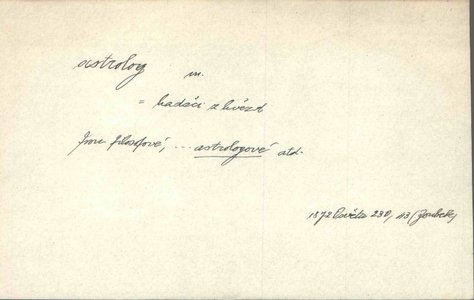 astrolog m.
= hadači z hvězd
Jsou filosofové, ... astrologové atd.
1872 Osvěta 230, 43 (Zoubek)